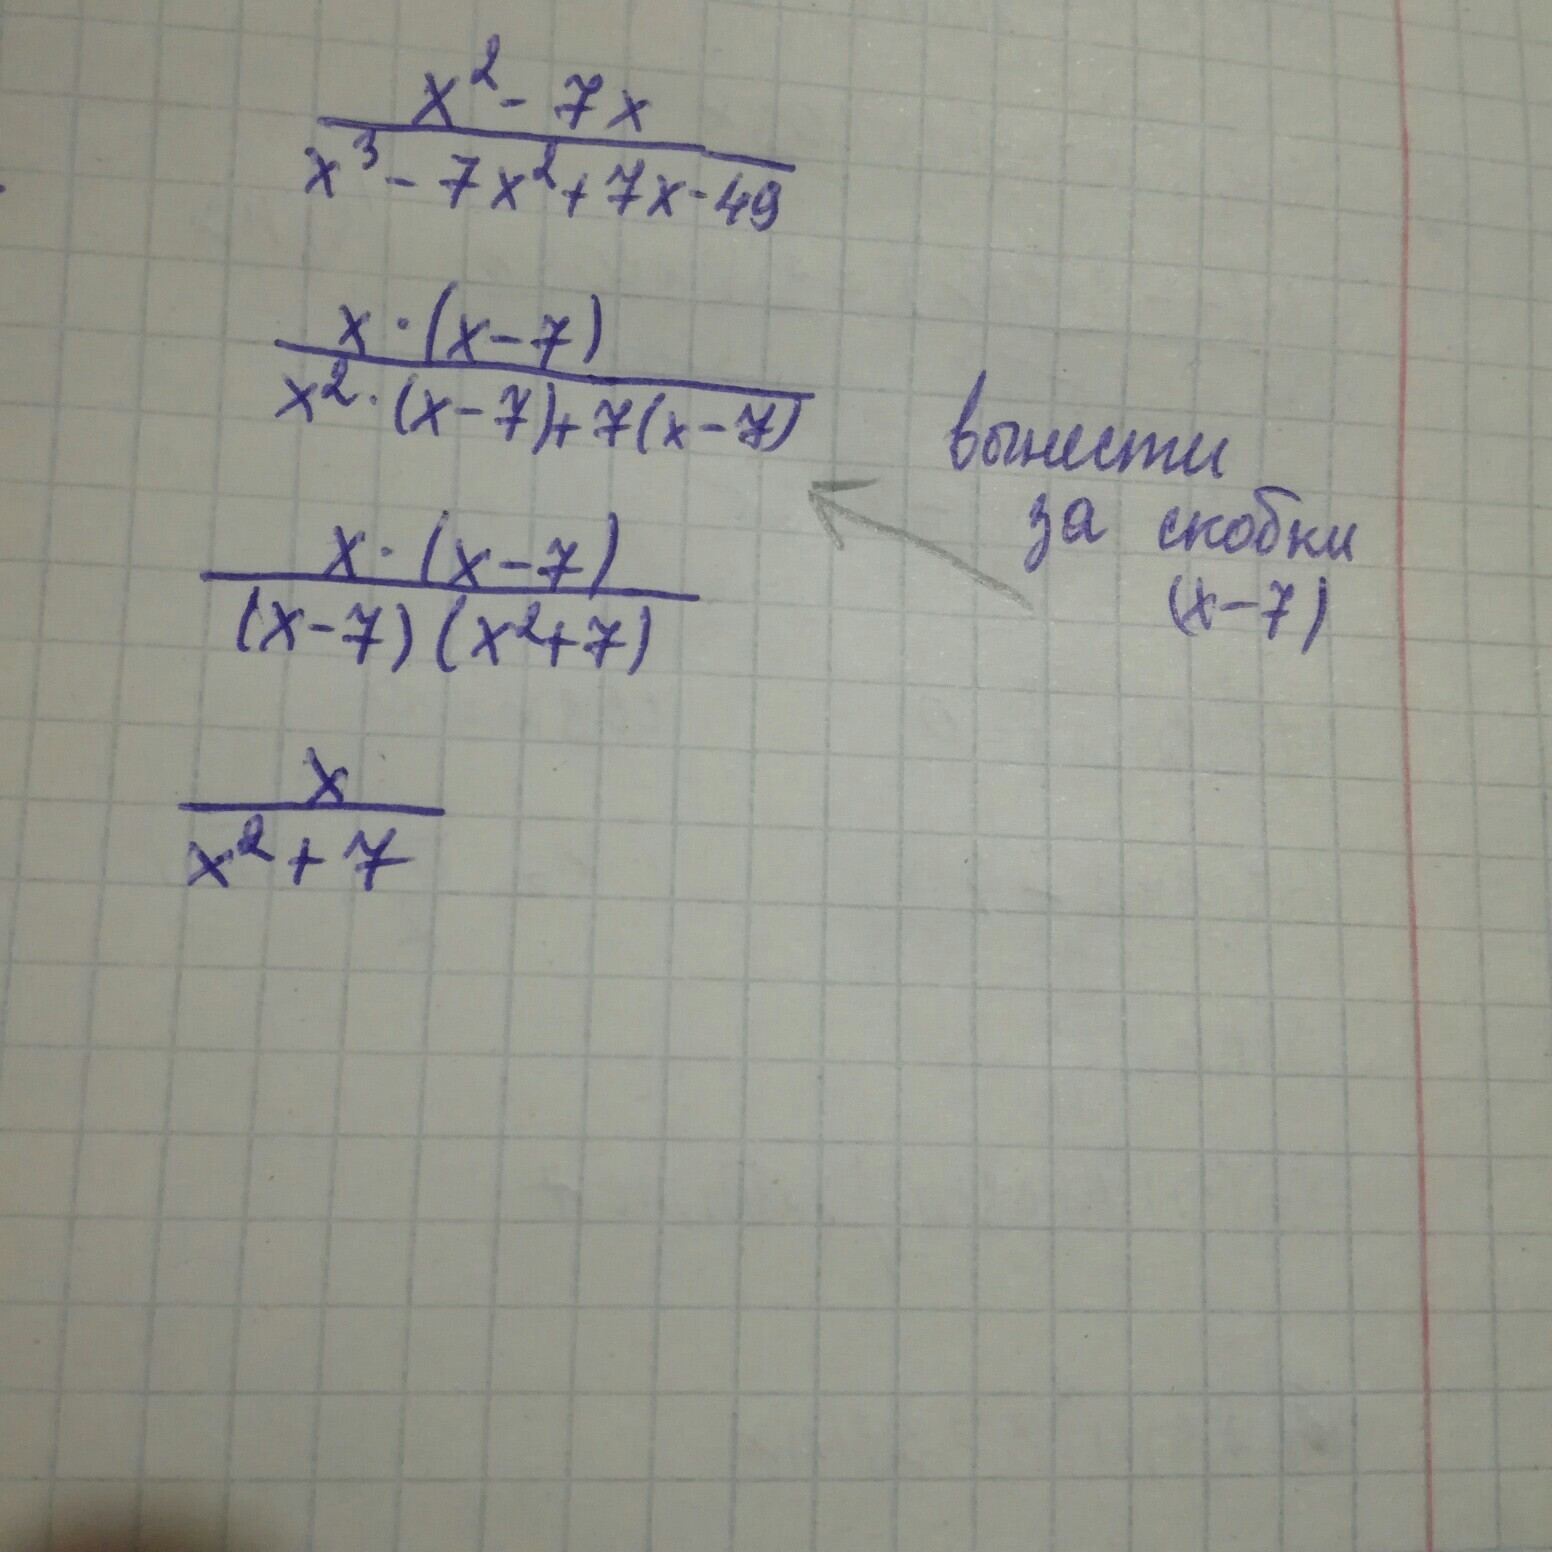 x² - 7x
x³ - 7x² + 7x - 49
x · (x - 7)
x² · (x - 7) + 7(x - 7)
вынести
за скобки
(x - 7)
x · (x - 7)
(x - 7) (x² + 7)
x
x² + 7